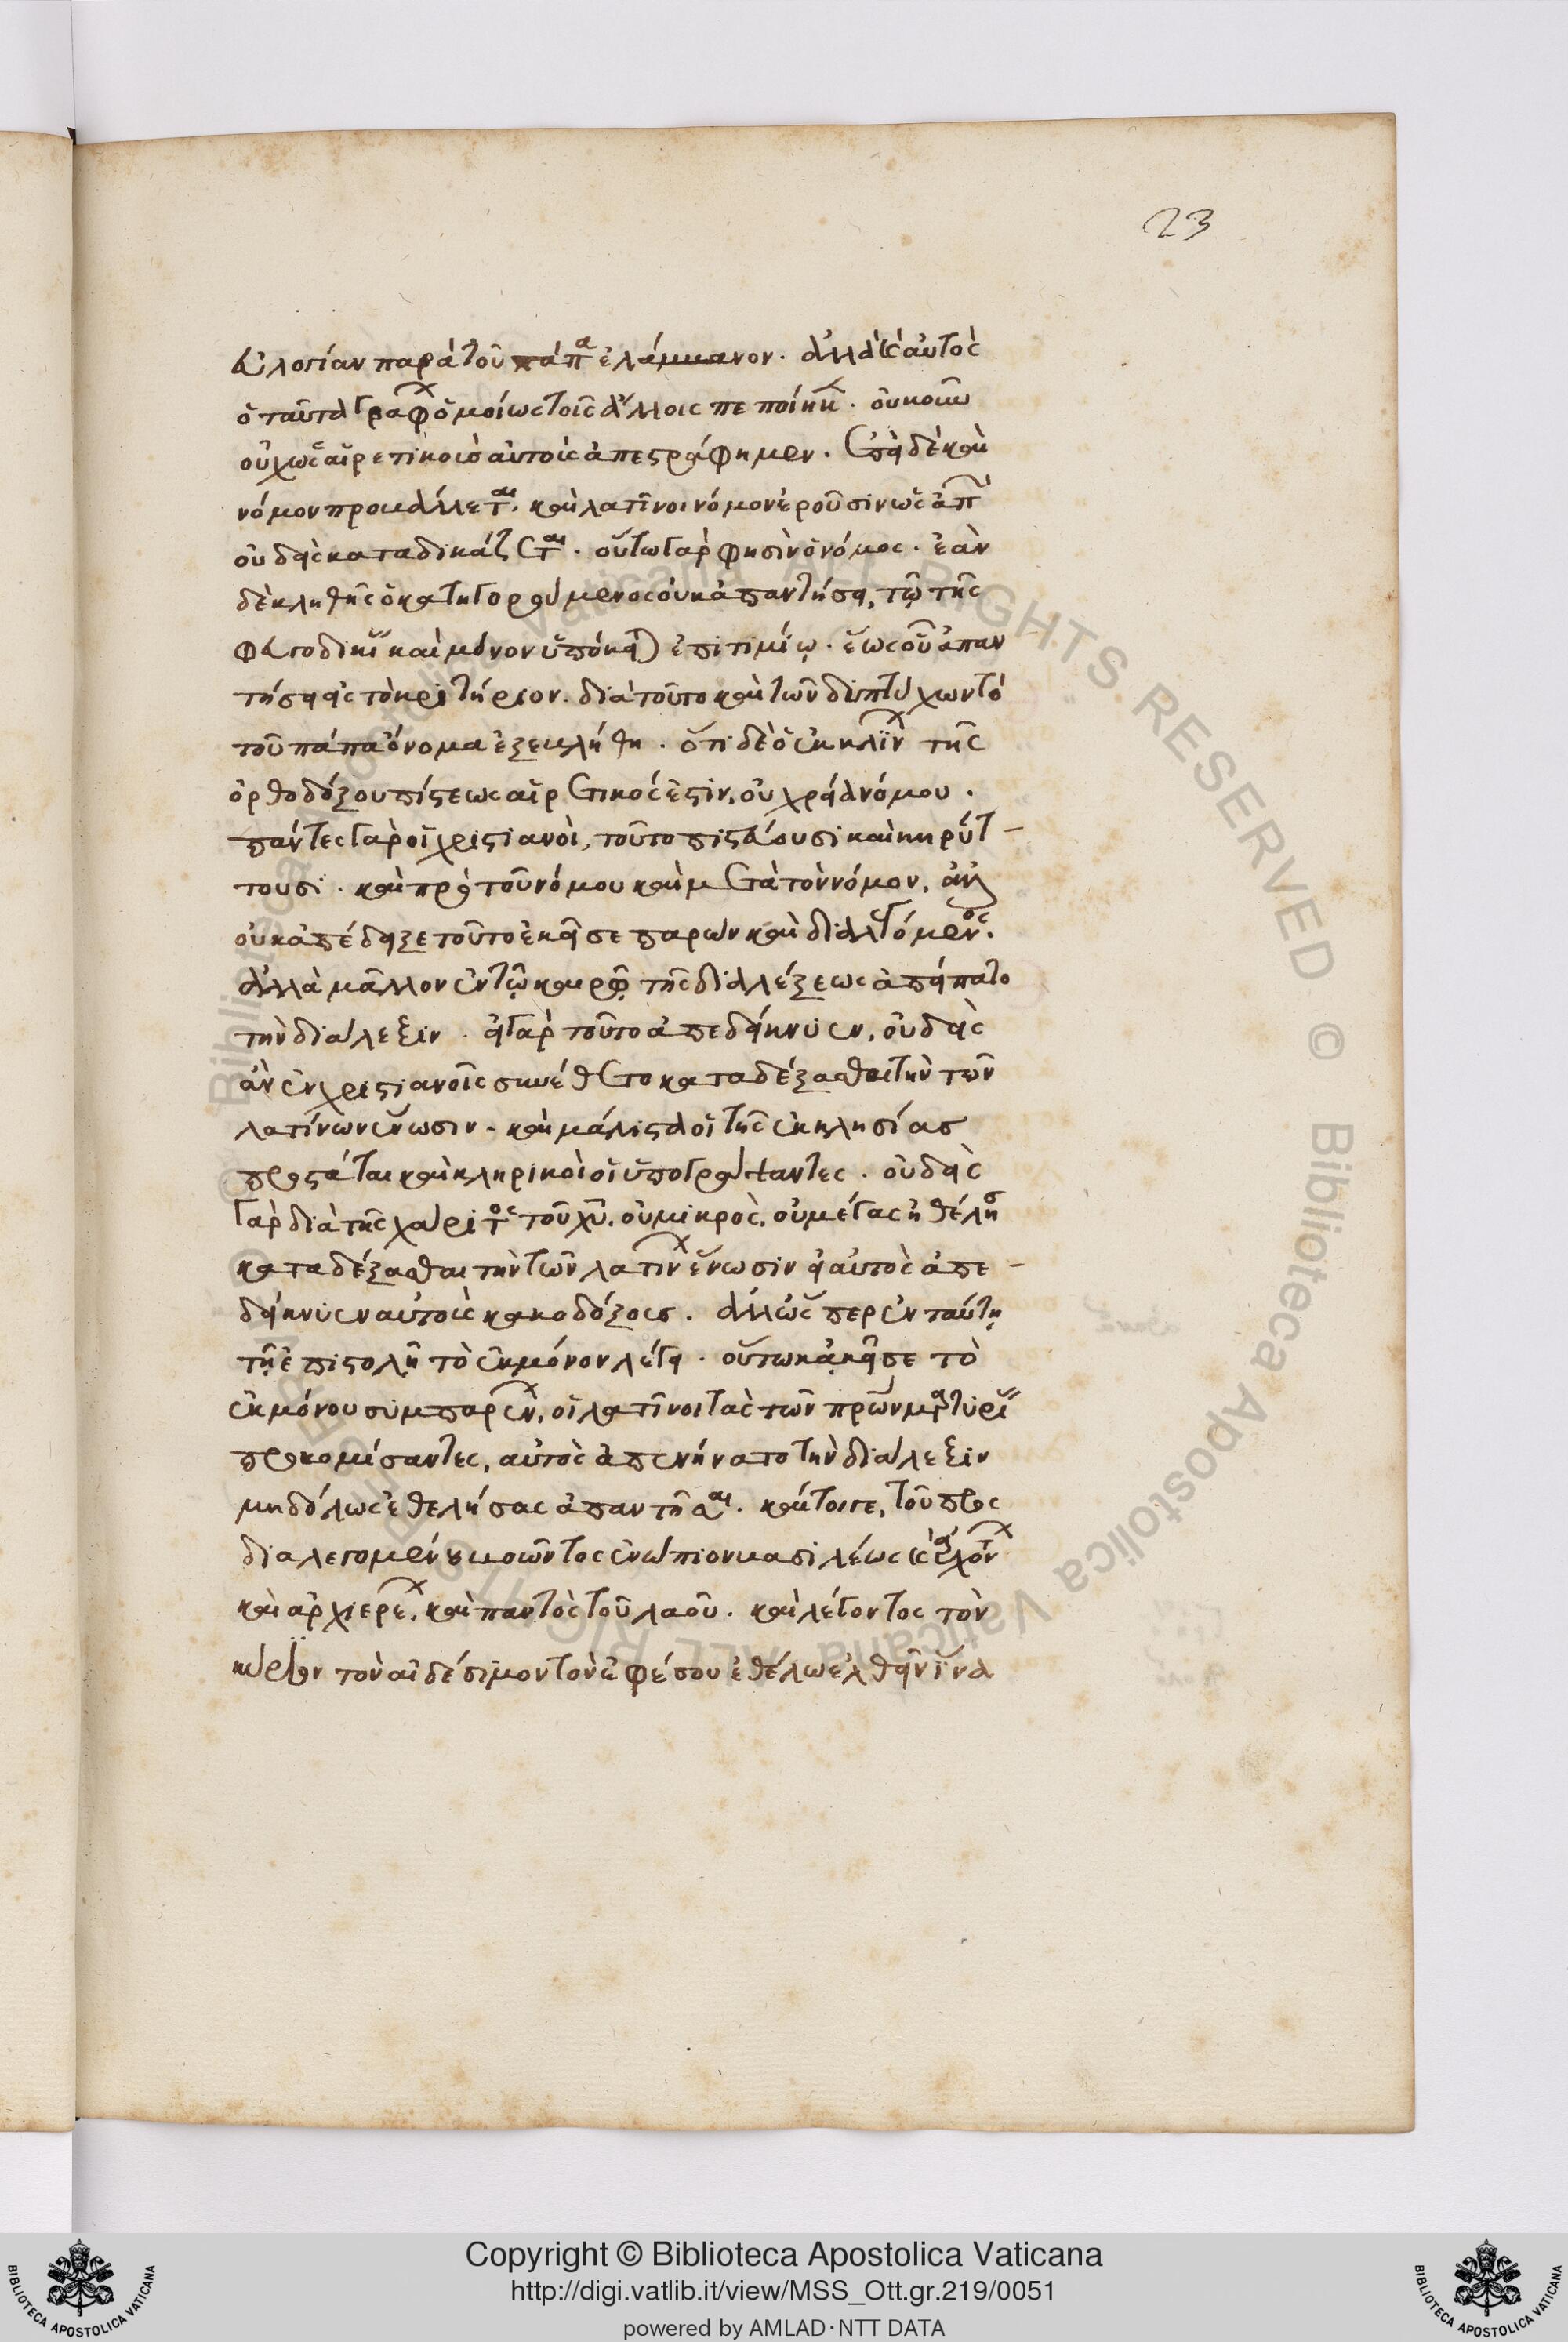 23
εὐλογίαν παρὰ τοῦ πάπα ἐλάμβανον. ἀλλὰ καὶ αὐτὸς
ὁ ταῦτα γράφων ὁμοίως τοῖς ἄλλοις πεποίηκε. οὐκοῦν
οὐχ ὡς αἱρετικοῖς αὐτοῖς ἀπεστράφημεν. ἐπεὶ δὲ καὶ
νόμον προβάλλεται. καὶ λατῖνοι νόμον ἐροῦσιν ὡς ἀπὼν
οὐδεὶς καταδικάζεται. οὕτω γὰρ φησὶν ὁ νόμος. ἐὰν
δὲ κληθεὶς ὁ κατηγορούμενος οὐκ ἀπαντήσει, τῷ τῆς
φυγοδικίας καὶ μόνον ὑπόκειται ἐπιτιμίῳ. ἕως οὗ ἀπαν
τήσει εἰς τὸ κριτήριον. διὰ τοῦτο καὶ τῶν διπτύχων τὸ
τοῦ πάπα ὄνομα ἐξεβλήθη. ὅτι δὲ ὁ ἐκκλίνων τῆς
ὀρθοδόξου πίστεως αἱρετικός ἐστιν, οὐ χρεία νόμου.
πάντες γὰρ οἱ χριστιανοὶ, τοῦτο πιστεύουσι καὶ κηρύτ-
τουσι. καὶ πρὸ τοῦ νόμου καὶ μετὰ τὸν νόμον, ἀλλ
οὐκ ἀπέδειξε τοῦτο ἐκεῖσε παρὼν καὶ διαλεγόμενος.
ἀλλὰ μᾶλλον ἐν τῷ καιρῷ τῆς διαλέξεως ἀπείπατο
τὴν διάλεξιν. εἰ γὰρ τοῦτο ἀπεδείκνυεν, οὐδεὶς
ἂν ἐν χριστιανοῖς συνέθετο καταδέξασθαι τὴν τῶν
λατίνων ἕνωσιν. καὶ μάλιστα οἱ τῆς ἐκκλησίας
προστάται καὶ κληρικοὶ οἱ ὑπογράψαντες. οὐδεὶς
γὰρ διὰ τῆς χάριτος τοῦ χυ, οὐ μικρὸς, οὐ μέγας ἠθέλησε
καταδέξασθαι τὴν τῶν λατίνων ἕνωσιν εἰ αὐτὸς ἀπε-
δείκνυεν αὐτοὺς κακοδόξους. ἀλλ ὥσπερ ἐν ταύτῃ
τῇ ἐπιστολῇ τὸ ἐκ μόνου λέγει. οὕτω κἀκεῖσε τὸ
ἐκ μόνου συμπαρεῖναι, οἱ λατῖνοι τὰς τῶν πρων μαρτυρίας
προκομίσαντες, αὐτὸς ἀπηνήνατο τὴν διάλεξιν
μηδόλως ἐθελήσας ἀπαντῆσαι. καίτοιγε, τοῦ πρὸς
διαλεγομένου βοῶντος ἐνώπιον βασιλέως καὶ ἀρχόντων
καὶ ἀρχιερέων, καὶ παντὸς τοῦ λαοῦ. καὶ λέγοντος τὸν
κύριον τὸν αἰδέσιμον τὸν ἐφέσου ἐθέλω ἐλθεῖν ἵνα
Copyright © Biblioteca Apostolica Vaticana
http://digi.vatlib.it/view/MSS_Ott.gr.219/0051
powered by AMLAD·NTT DATA